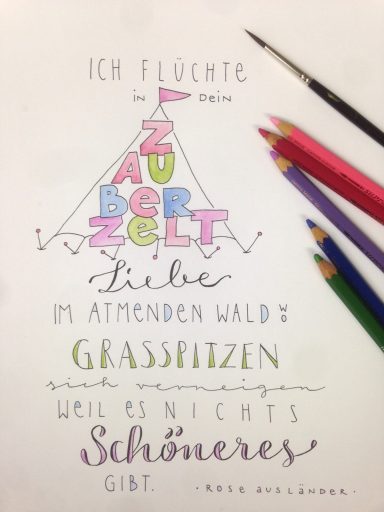 ICH FLÜCHTE
in Dein
ZAUBERZELT
Liebe
IM ATMENDEN WALD WO
GRASSPITZEN
sich verneigen
WEIL ES NICHTS
SCHÖNERES
GIBT.
· ROSE AUSLÄNDER ·